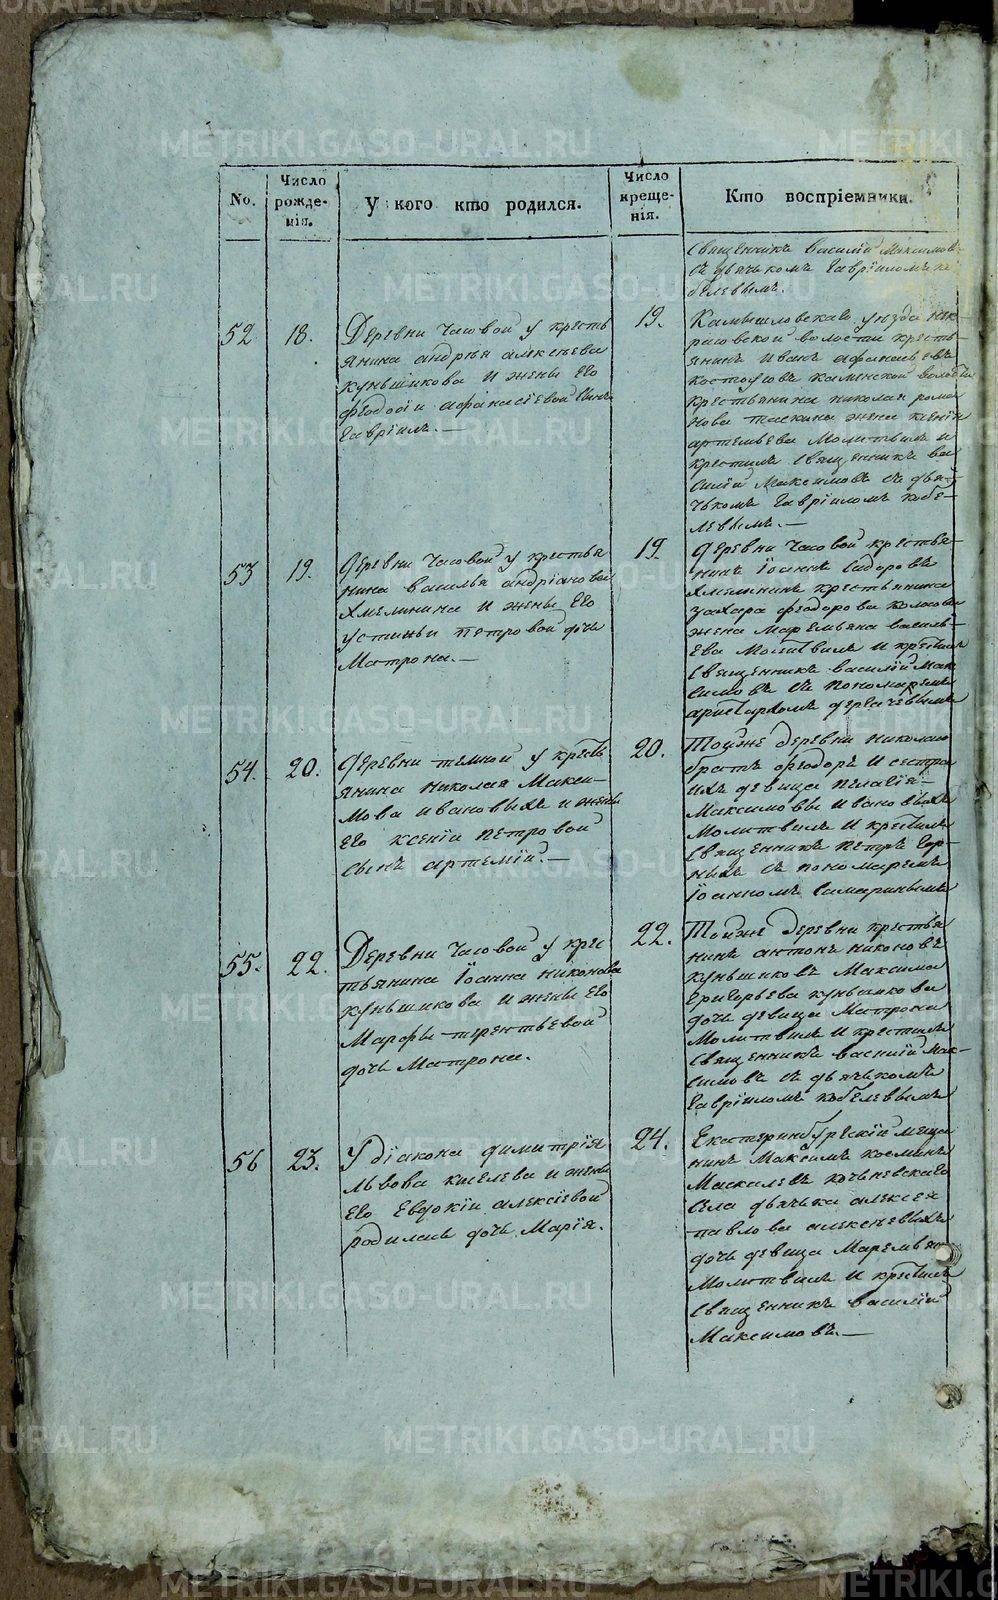 No.
Число рожде-
нія.
У кого кто родился.
Число креще-
нія.
Кто воспріемники.
Священникъ Василій Максимов-
съ дьячькомъ Гавріиломъ Ко-
белевымъ.
52
18.
Деревни Часовой у кресть
янина Андрея Алексѣева
Куньщикова и жены его
Феодосіи Афанасіевой сынъ
Гавріилъ.—
19.
Камышловскаго уѣзда
волости кресть-
янинъ Иванъ Афанасьевъ
Костоусовъ Каменской волости
крестьянина Николая Рома
нова жена Ксенія
Артемьева Молитвилъ и
крестилъ Священникъ Ва
силій Максимовъ съ дья-
чькомъ Гавріиломъ Кобе-
левымъ.—
53
19.
Деревни Часовой у крестья
нина Василья Андріанова
Хмелинина и жены его
Устиньи Петровой дочь
Матрона.—
19.
Деревни Часовой крестья-
нинъ Іоаннъ Сидоровъ
Хмелининъ крестьянина
Захара Феодорова
жена Маремьяна Василь-
ева Молитвилъ и крестилъ
Священникъ Василій Мак
симовъ съ пономаремъ
Аристархомъ Дергачевымъ
54.
20.
Деревни Темной у кресть
янина Николая Макси-
мова Ивановыхъ и жены
его Ксеніи Петровой
сынъ Артемій.—
20.
Тойже деревни Николаю
братъ Феодоръ и сестра
ихъ девица Пелагія—
Максимовы Ивановыхъ
Молитвилъ и крестилъ
Священникъ Петръ Гор-
ныхъ съ пономаремъ
Іоанномъ Самаринымъ
55.
22.
Деревни Часовой у крес
тьянина Іоанна Никонова
Куньщикова и жены его
Марфы Терентьевой
дочь Матрона.
22.
Тойже деревни крестья
нинъ Антонъ Никоновъ
Куньщиковъ Максима
Григорьева Куньщикова
дочь девица Матрона
Молитвилъ и крестилъ
Священникъ Василій Мак-
симовъ съ дьячькомъ
Гавріиломъ Кобелевымъ
56
23.
У діакона Димитрія
Львова Киселева и жены
его Евдокіи Алексіевой
родилась дочь Марія.
24.
Екатеринбургскій меща
нинъ Максимъ Косминъ
Маскалевъ Кочьневскаго
села дьячька Алексея
Павлова Алексѣевыхъ
дочь девица Маремьяна
Молитвилъ и крестилъ
Священникъ Василій
Максимовъ.—
METRIKI.GASO-URAL.RU